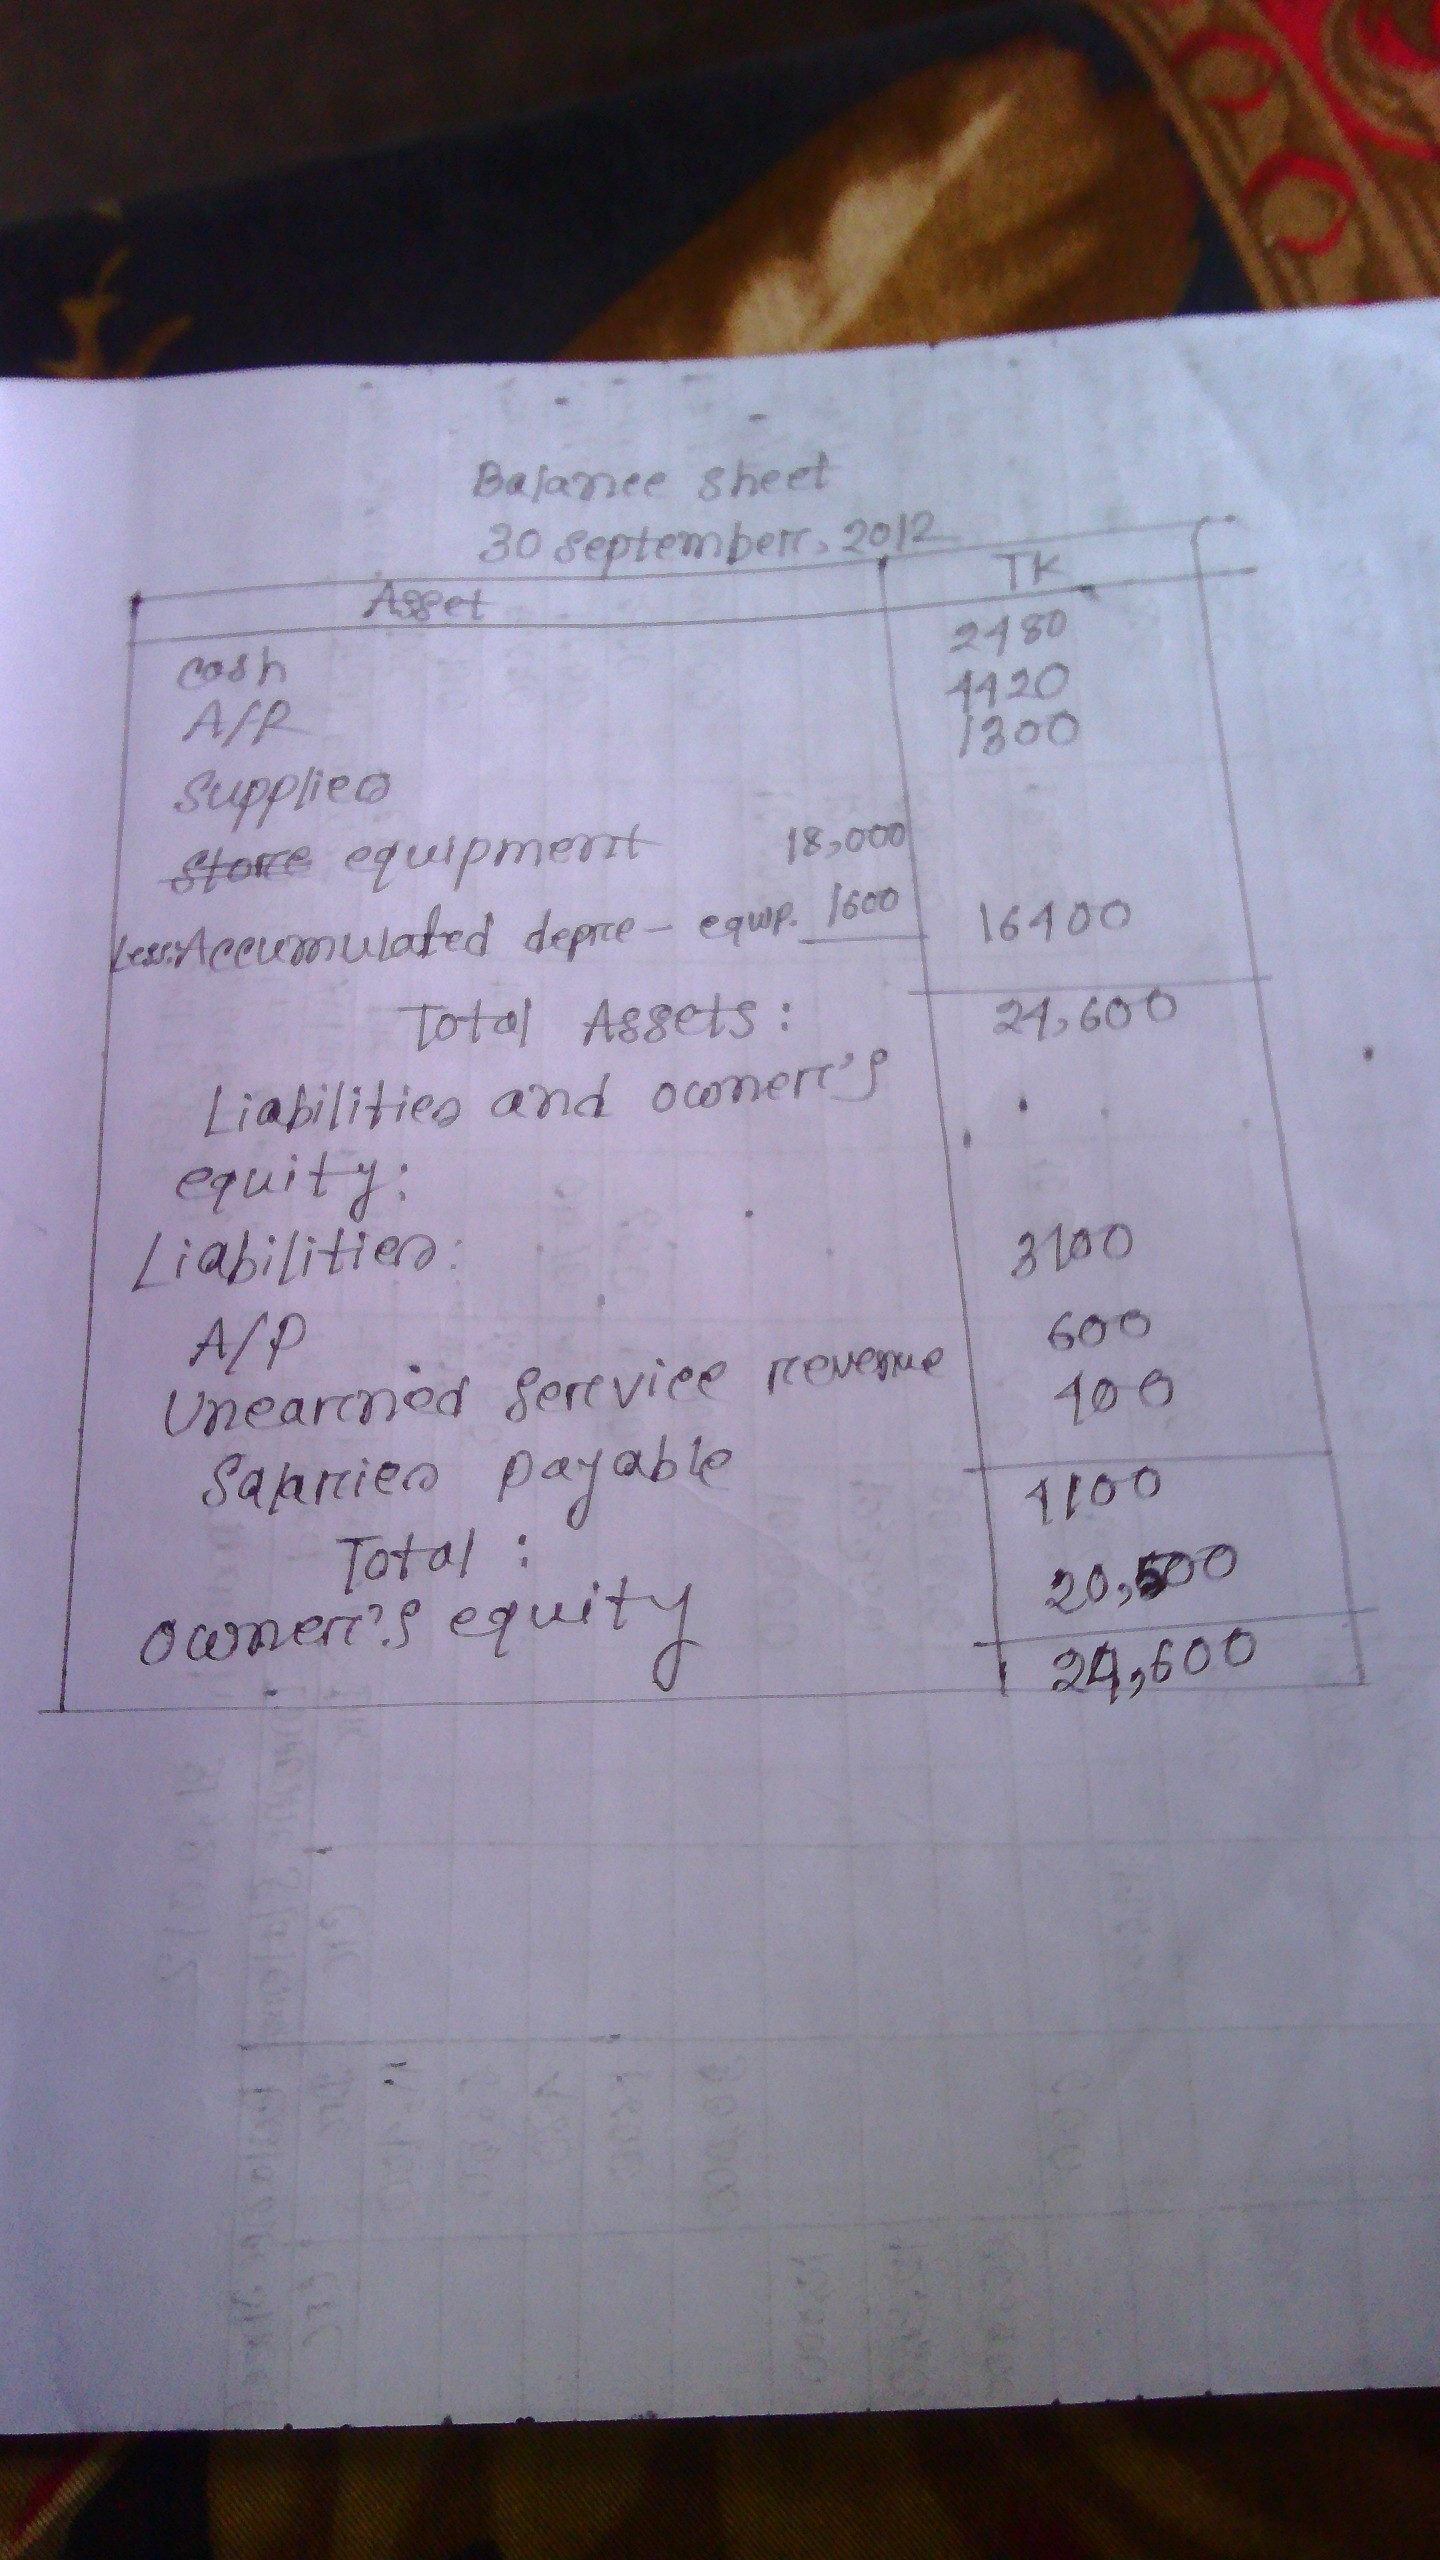 Balance sheet
30 September, 2012
Asset TK
cash 2480
A/R 4420
Supplies 1300
Store equipment 18,000
Less: Accumulated depre - equip. 1600 16400
Total Assets: 24,600
Liabilities and owner's
equity:
Liabilities:
A/P 3100
Unearned service revenue 600
Salaries payable 400
Total: 4100
owner's equity 20,500
24,600